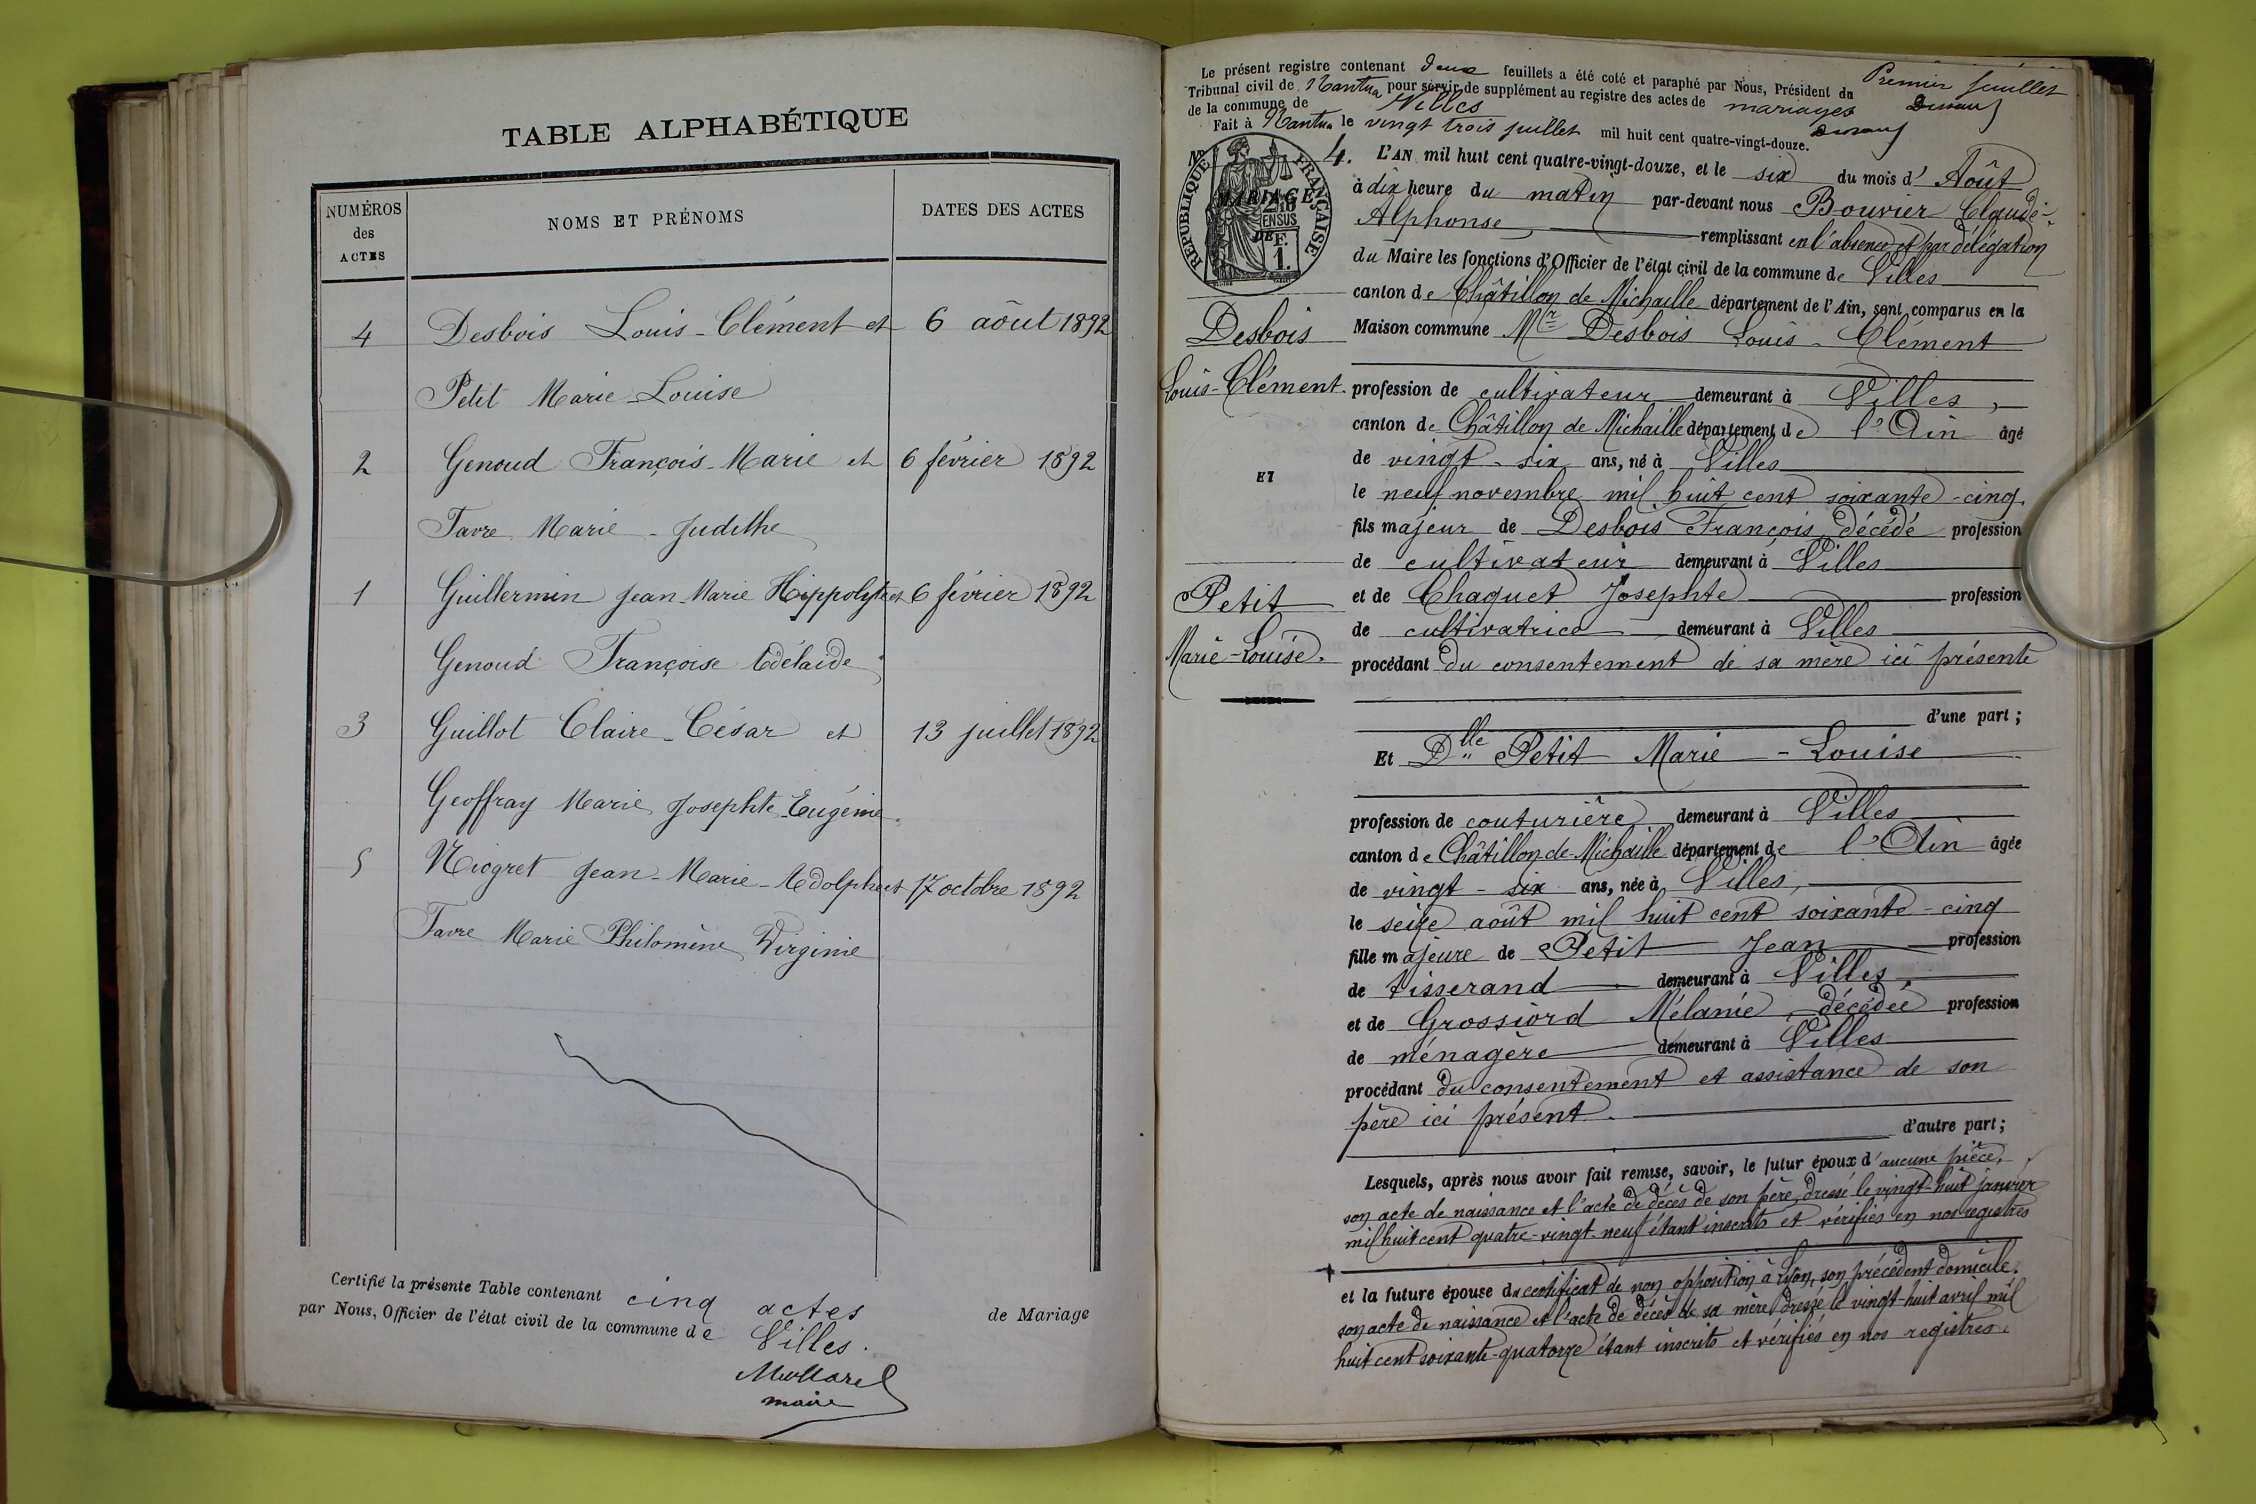 TABLE ALPHABÉTIQUE
NUMÉROS des ACTES
NOMS ET PRÉNOMS
DATES DES ACTES
4 Desbois Louis-Clément et 6 aôut 1892
Petit Marie-Louise
2 Genoud François-Marie et 6 février 1892
Favre Marie-Judithe
1 Guillermin Jean-Marie Hippolyte et 6 février 1892
Genoud Françoise Adélaïde
3 Guillot Claire-César et 13 juillet 1892
Geoffray Marie Josephte-Eugénie.
5 Niogret Jean-Marie-Adolphe et 17 octobre 1892
Favre Marie Philomène Virginie
Certifié la présente Table contenant cinq actes de Mariage
par Nous, Officier de l'état civil de la commune de Villes.
maire
Le présent registre contenant deux feuillets a été coté et paraphé par Nous, Président du
Tribunal civil de Nantua pour servir de supplément au registre des actes de mariages
de la commune de Villes
Fait à Nantua le vingt trois juillet mil huit cent quatre-vingt-douze.
Premier feuillet
RÉPUBLIQUE FRANÇAISE
2/10 EN SUS
F.
1.
No 4.
MARIAGE
DE
Desbois
Louis-Clément.
ET
Petit
Marie-Louise.
L'AN mil huit cent quatre-vingt-douze, et le six du mois d'Aôut
à dix heure du matin par-devant nous Bouvier Claude-
Alphonse remplissant en l'absence et par délégation
du Maire les fonctions d'Officier de l'état civil de la commune de Villes
canton de Châtillon de Michaille département de l'Ain, sont comparus en la
Maison commune Mr Desbois Louis-Clément
profession de cultivateur demeurant à Villes,
canton de Châtillon de Michaille département de l'Ain âgé
de vingt-six ans, né à Villes
le neuf novembre mil huit cent soixante-cinq.
fils majeur de Desbois François décédé profession
de cultivateur demeurant à Villes
et de Chaquet Josephte profession
de cultivatrice demeurant à Villes
procédant du consentement de sa mère ici présente
d'une part;
Et Dlle Petit Marie-Louise
profession de couturière demeurant à Villes
canton de Châtillon de Michaille département de l'Ain âgée
de vingt-six ans, née à Villes,
le seize août mil huit cent soixante-cinq
fille majeure de Petit Jean profession
de tisserand demeurant à Villes
et de Grossiord Mélanie, décédée profession
de ménagère demeurant à Villes
procédant du consentement et assistance de son
père ici présent.
d'autre part;
Lesquels, après nous avoir fait remise, savoir, le futur époux d'aucune pièce,
son acte de naissance et l'acte de décès de son père, dressé le vingt-huit janvier
mil huit cent quatre-vingt-neuf étant inscrits et vérifiés en nos registres
et la future épouse du certificat de non opposition à Lyon, son précédent domicile.
son acte de naissance et l'acte de décès de sa mère dressé le vingt-huit avril mil
huit cent soixante-quatorze étant inscrits et vérifiés en nos registres.